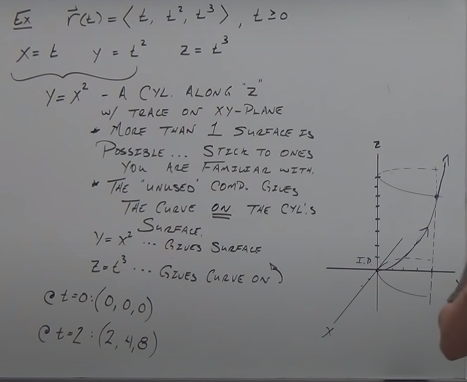 Ex r⃗(t) = ⟨ t, t², t³ ⟩, t ≥ 0
x = t y = t² z = t³
y = x² - A CYL. ALONG "Z"
W/ TRACE ON XY-PLANE
* MORE THAN 1 SURFACE IS
POSSIBLE... STICK TO ONES
YOU ARE FAMILIAR WITH.
* THE "UNUSED" COMP. GIVES
THE CURVE ON THE CYL'S
SURFACE.
y = x² ... GIVES SURFACE
z = t³ ... GIVES CURVE ON
@ t=0: (0, 0, 0)
@ t=2: (2, 4, 8)
Z
I.P.
X